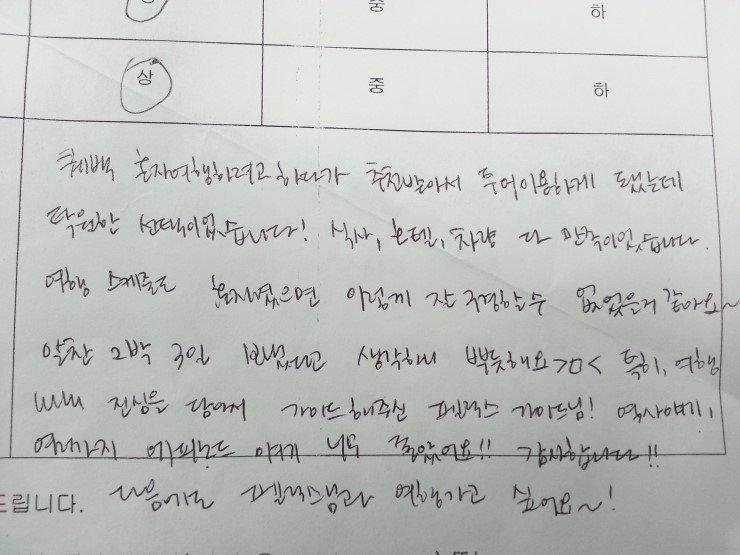 중 하
상 중 하
퀘백 혼자여행하려고 하다가 추천받아서 투어이용하게 됐는데
탁월한 선택이었습니다! 식사, 호텔, 차량 다 만족이었습니다.
여행 스케줄도 혼자였으면 이렇게 잘 구경할수 없었을거 같아요~
알찬 2박 3일 보냈다고 생각하니 뿌듯해요>ㅁ< 특히, 여행
내내 진심을 담아서 가이드해주신 펠릭스 가이드님! 역사얘기,
여러가지 에피소드 얘기 너무 즐았어요!! 감사합니다!!
드립니다. 다음에도 펠릭스님과 여행가고 싶어요~!